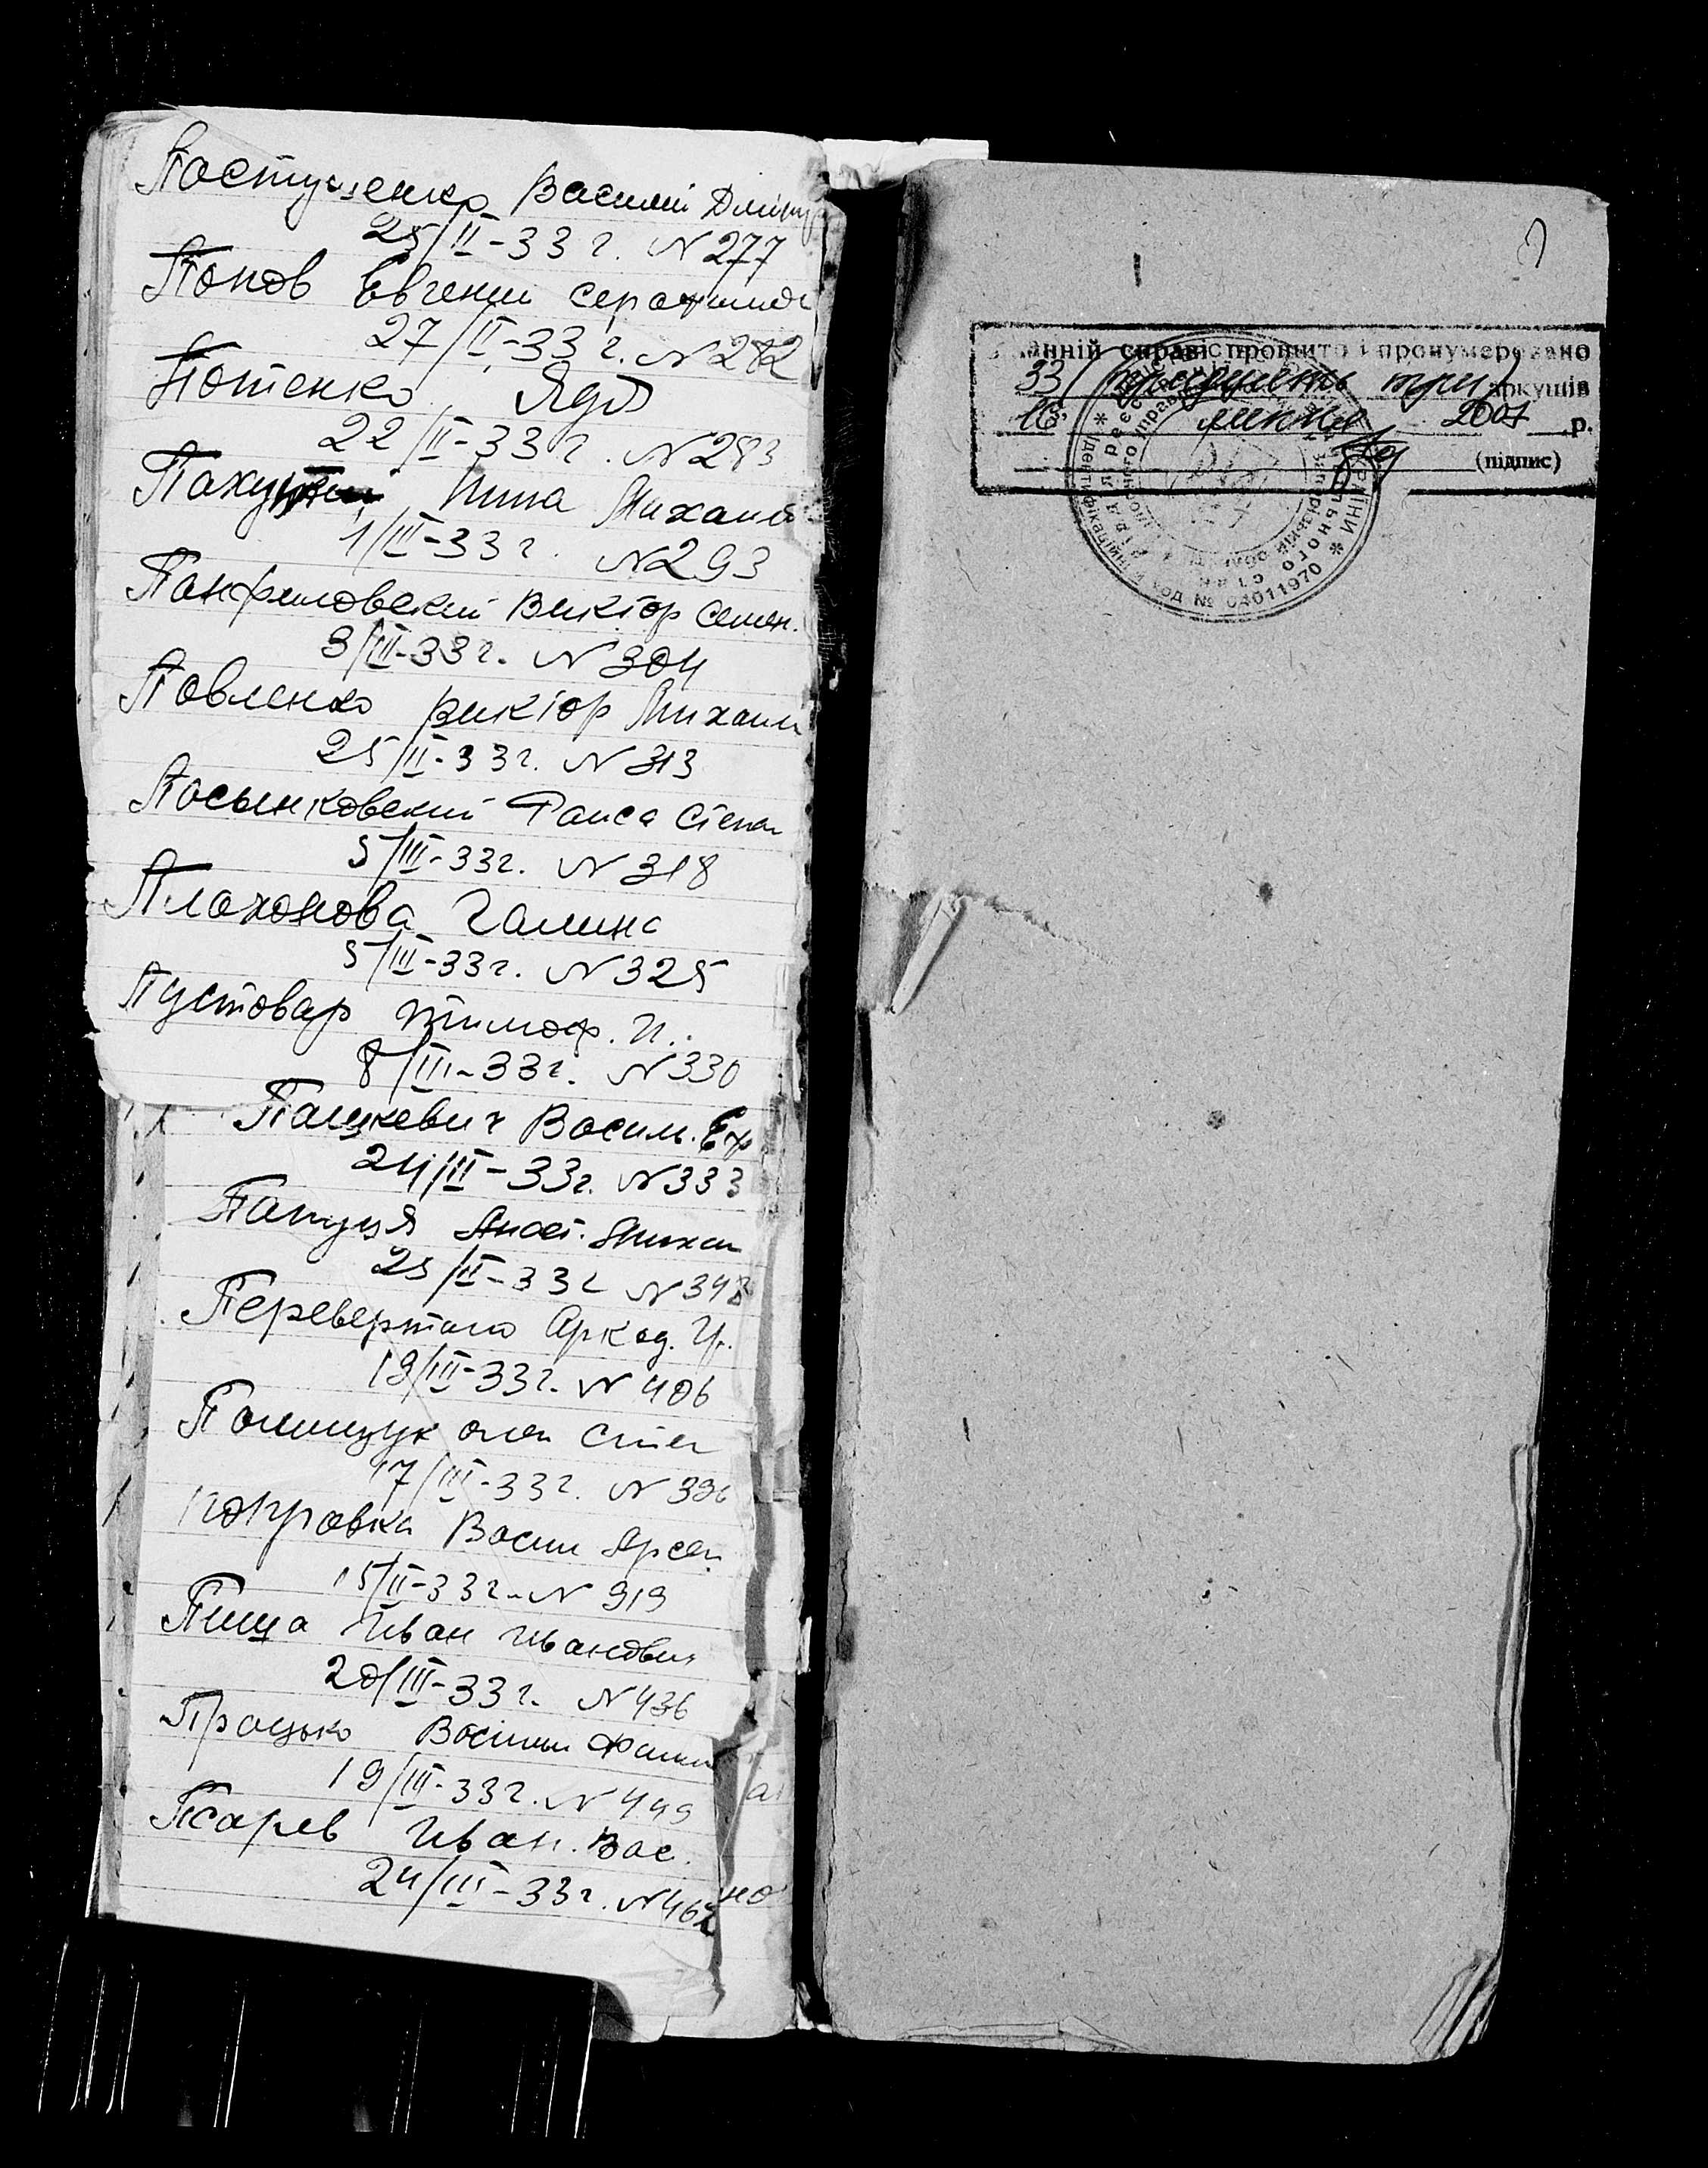 Пастушенко Василий Дмитр
25/II-33 г. N 277
Попов Евгений Серафимов
27/II-33 г. N 282
Потенко Ядв
22/II-33 г. N 283
Нина Михайл
1/III-33 г. N 293
Панфиловский Виктор Семен.
3/III-33 г. N 304
Павленко Виктор Михайл
25/II-33 г. N 313
Посынковский Раиса Степан
5/III-33 г. N 318
Плахонова Галина
5/III-33 г. N 325
Пустовар Тимоф. И.
8/III-33 г. N 330
Пашкевич Васил. Еф
24/II-33 г. N 333
Анаст. Михаил
25/II-33 г N 348
Перевертайло Аркад. Гр.
19/III-33 г. N 406
Полищук Степ
17/III-33 г. N 396
Копровка Васил Арсен
15/II-33 г. N 919
Пища Иван Иванович
20/III-33 г. N 436
Процько Василий
19/III-33 г. N 449
Псарев Иван. Вас.
24/III-33 г. N 462
справі прошито і пронумеровано
33 (тридцять три) аркушів
16 липня 2007 р.
(підпис)
Ідентифікаційний код № 04011970